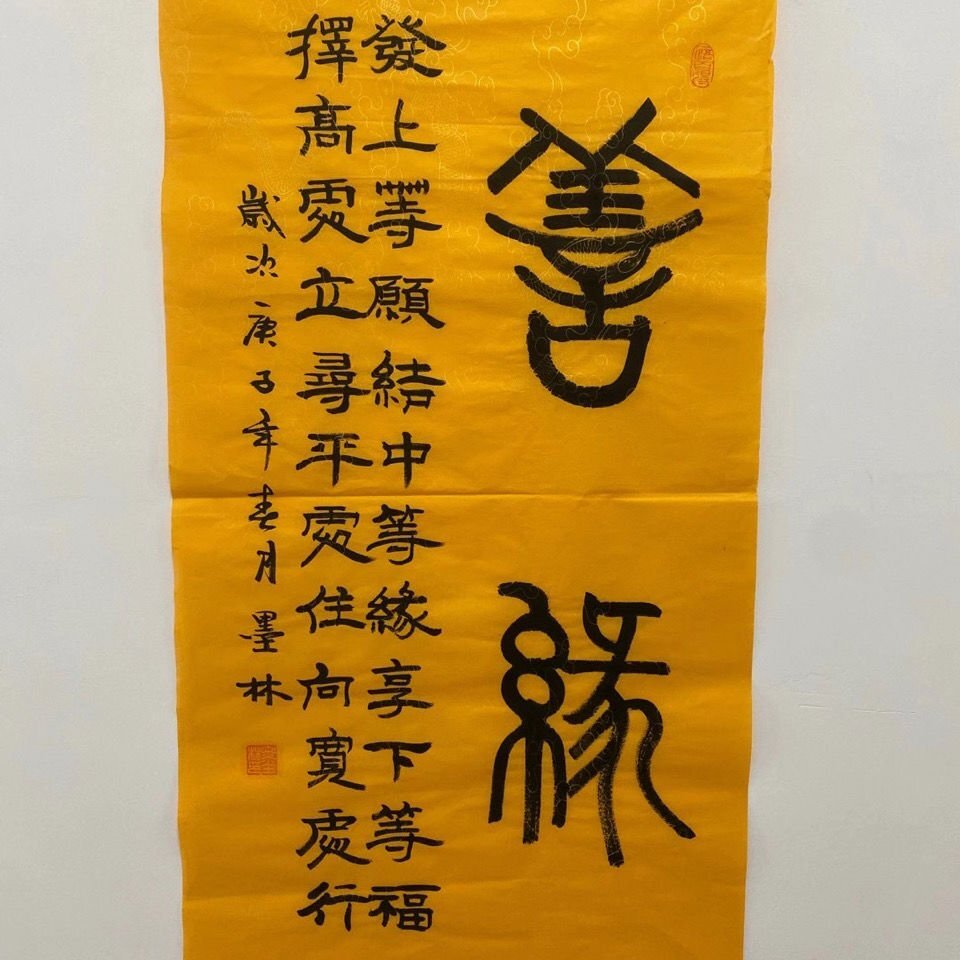 善緣
發上等願結中等緣享下等福
擇高處立尋平處住向寬處行
歲次庚子年春月墨林